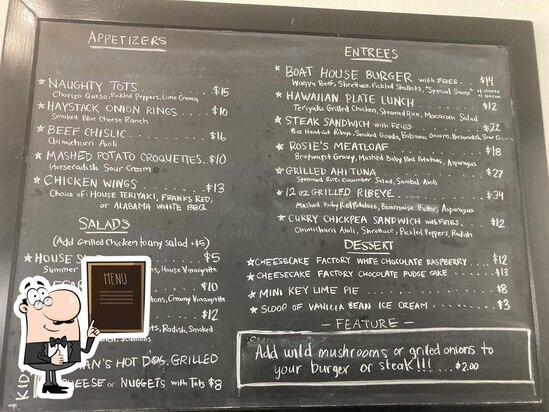 APPETIZERS
★ NAUGHTY TOTS . . . $15
Chorizo Queso, Pickled Peppers, Lime Crema
★ HAYSTACK ONION RINGS . . $10
Smoked Blue Cheese Ranch
★ BEEF CHISLIC . . . $16
Chimichurri Aioli
★ MASHED POTATO CROQUETTES. $10
Horseradish Sour Cream
★ CHICKEN WINGS . . . $13
Choice of: HOUSE TERIYAKI, FRANKS RED,
or ALABAMA WHITE BBQ
SALADS
(Add Grilled Chicken to any salad +$5)
★ HOUSE $5
Summer House Vinaigrette
$10
Creamy Vinaigrette
$12
Radish, Smoked
KID
HOT DOG, GRILLED
CHEESE or NUGGETS with Tots $8
MENU
ENTREES
★ BOAT HOUSE BURGER with FRIES . . $14
Wagyu Beef, Shrettuce, Pickled Shallots, "Special Sauce"
★ HAWAIIAN PLATE LUNCH . . . $12
Teriyaki Grilled Chicken, Steamed Rice, Macaroni Salad
★ STEAK SANDWICH with FRIES . . $22
Smoked Gouda, Balsamic Onions,
★ ROSIE'S MEATLOAF . . . $18
Bratwurst Gravy, Mashed Baby Red Potatoes, Asparagus
★ GRILLED AHI TUNA . . . $27
Steamed Rice, Cucumber Salad, Sambal Aioli
★ 12 oz GRILLED RIBEYE . . . $34
Mashed Baby Red Potatoes, Bearnaise Butter, Asparagus
★ CURRY CHICKPEA SANDWICH with FRIES . $12
Chimichurri Aioli, Shrettuce, Pickled Peppers, Radish
DESSERT
★ CHEESECAKE FACTORY WHITE CHOCOLATE RASPBERRY . . $12
★ CHEESECAKE FACTORY CHOCOLATE FUDGE CAKE . . . $13
★ MINI KEY LIME PIE . . . $8
★ SCOOP OF VANILLA BEAN ICE CREAM . . . $3
— FEATURE —
Add wild mushrooms or grilled onions to
your burger or steak!!! ...$2.00